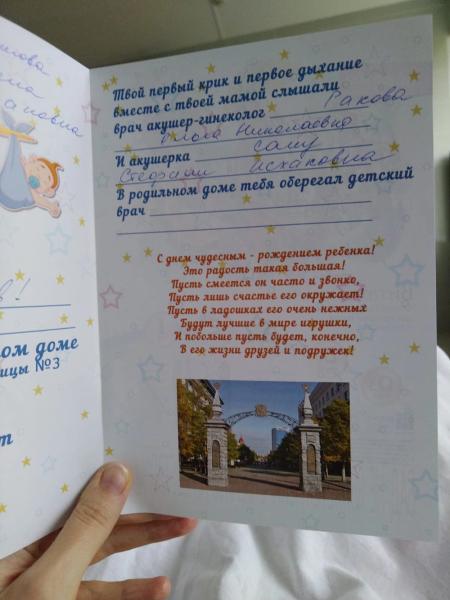 Твой первый крик и первое дыхание
вместе с твоей мамой слышали
врач акушер-гинеколог Ракова
Николаевна
И акушерка
Исхаковна
В родильном доме тебя оберегал детский
врач
С днем чудесным - рождением ребенка!
Это радость такая большая!
Пусть смеется он часто и звонко,
Пусть лишь счастье его окружает!
Пусть в ладошках его очень нежных
Будут лучшие в мире игрушки,
И побольше пусть будет, конечно,
В его жизни друзей и подружек!
ом доме
ицы №3